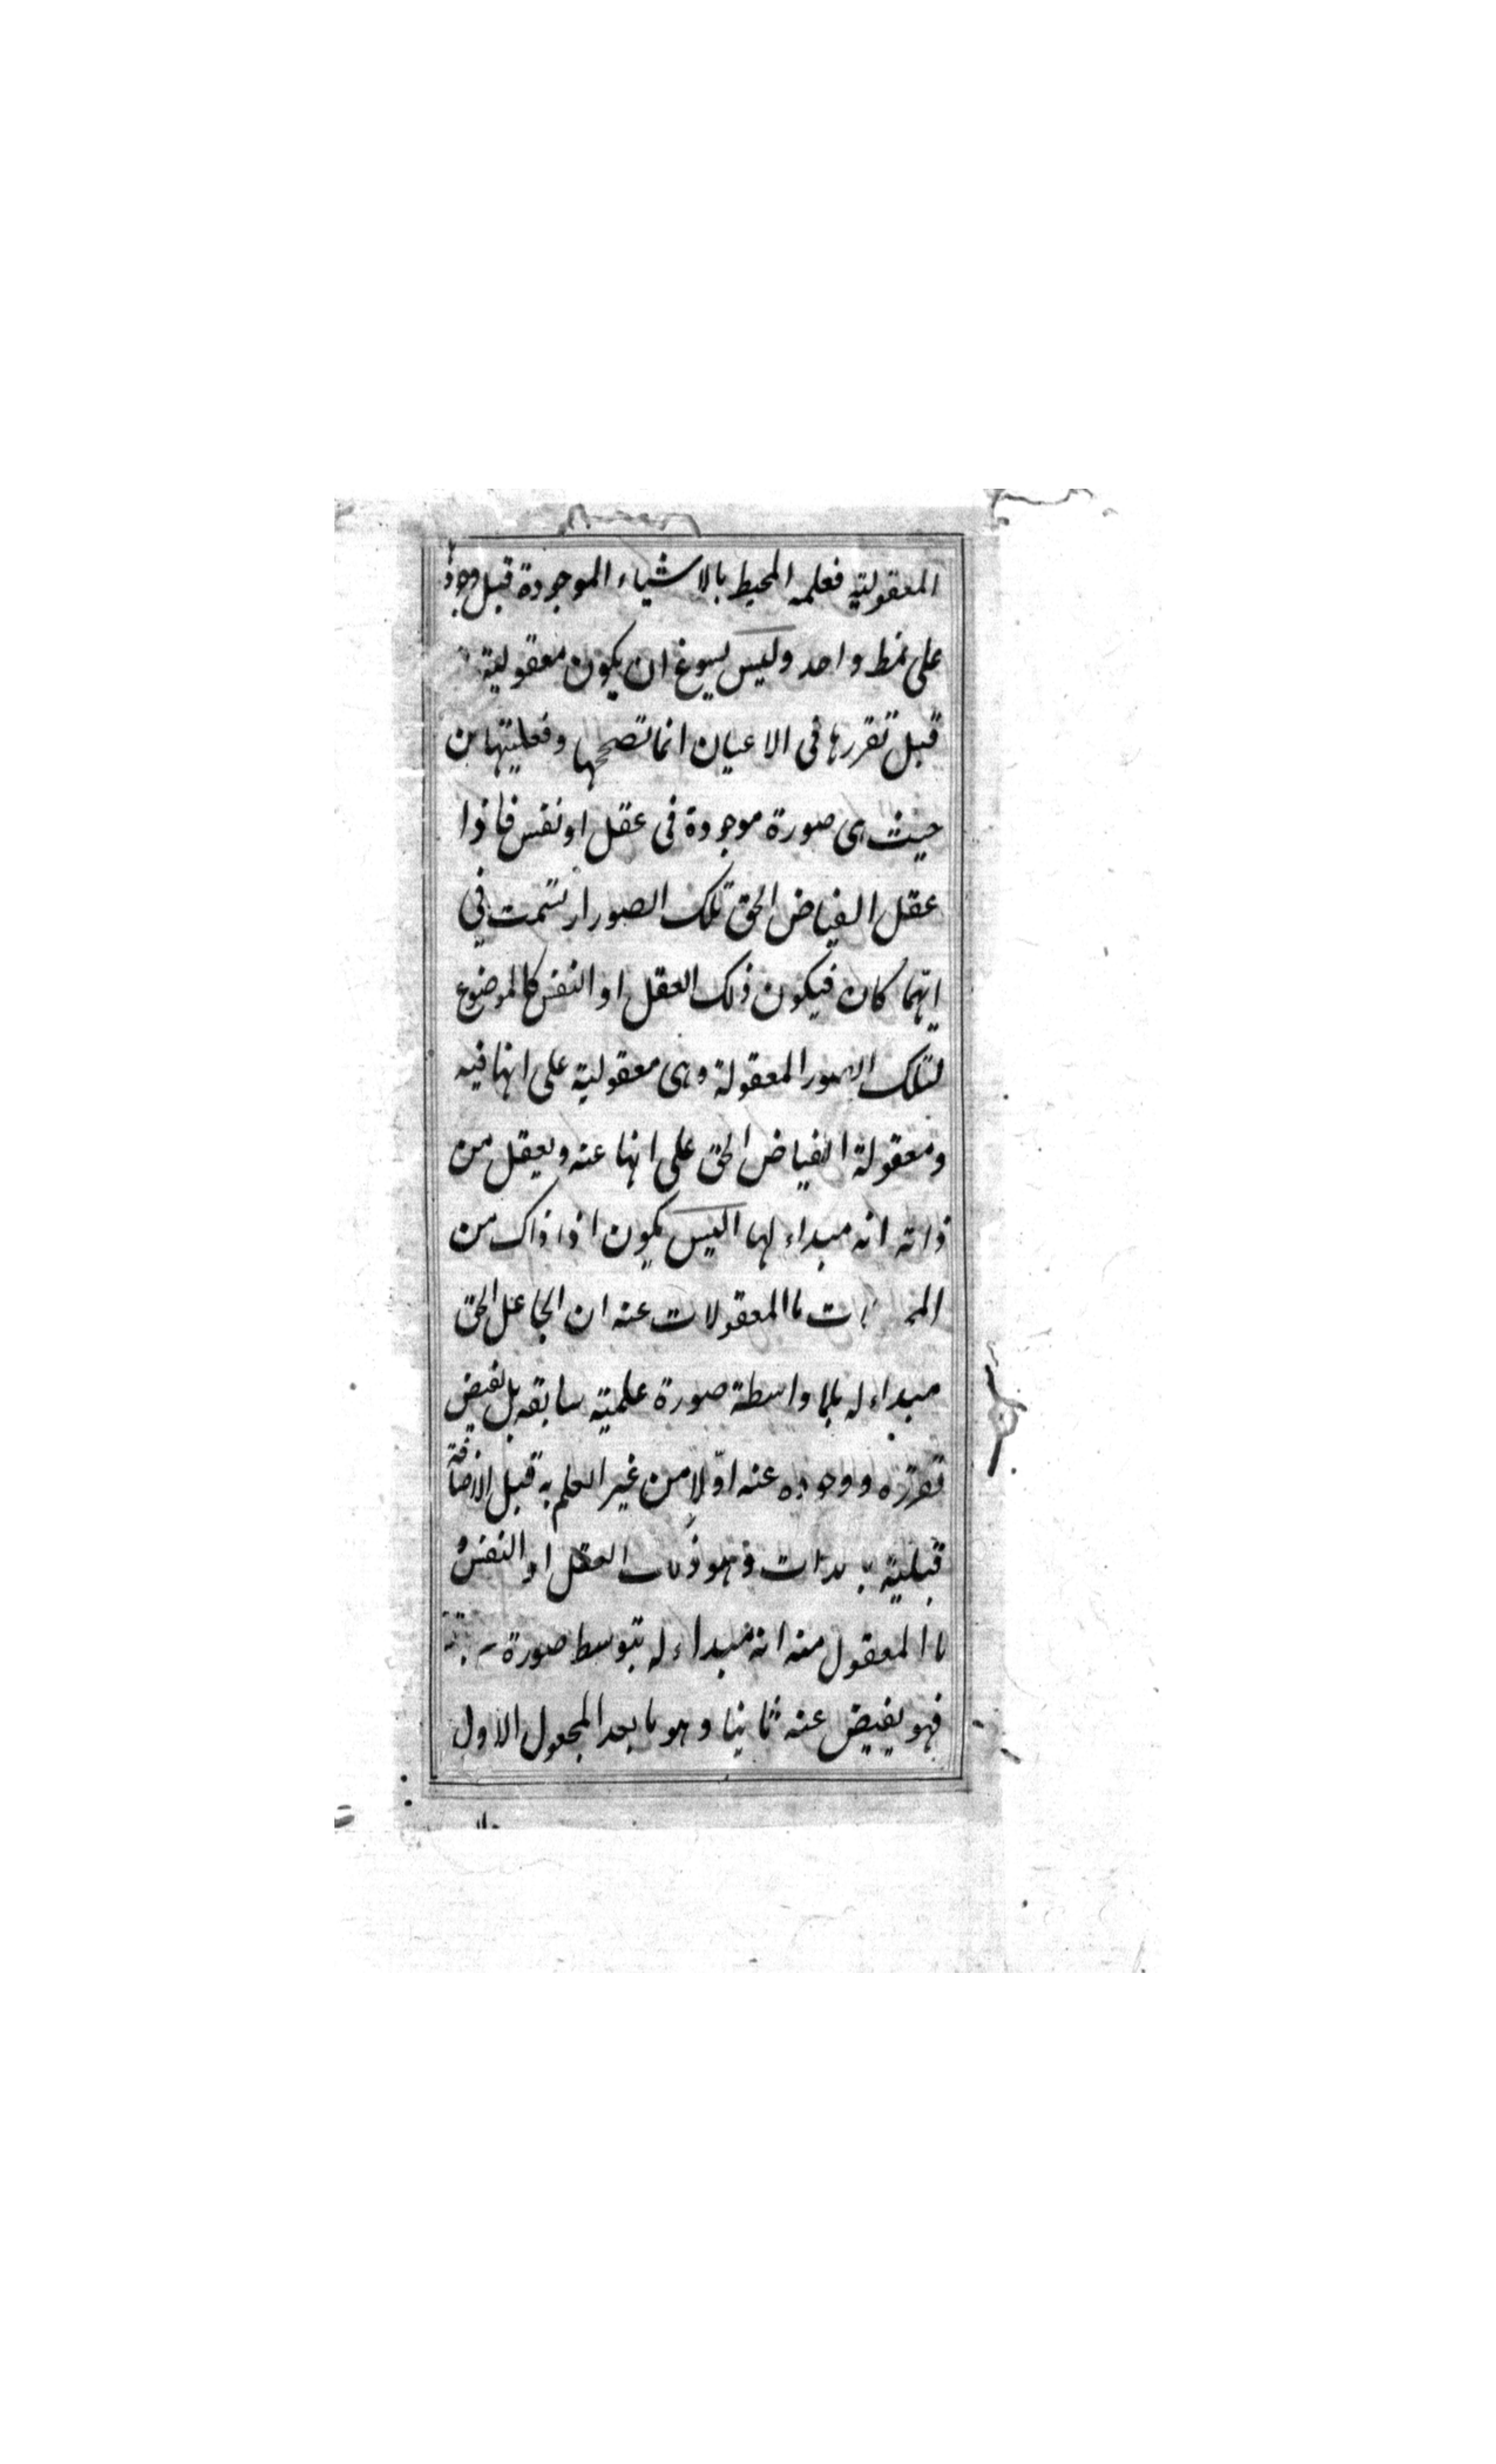 المعقولية فعلمه المحيط بالاشياء الموجودة قبل وجود
على نمط واحد وليس يسوغ ان يكون معقولية
قبل تقررها فى الاعيان انما تصححها وفعليتها من
حيث هى صورة موجودة فى عقل او نفس فاذا
عقل الفياض الحق تلك الصور ارتسمت في
ايهما كان فيكون ذلك العقل او النفس كالموضوع
لتلك الصور المعقولة وهى معقولية على انها فيه
ومعقولة الفياض الحق على انها عنه ويعقل من
ذاته انه مبداء لها اليس يكون اذا ذاك من
ما المعقولات عنه ان الجاعل الحق
مبداء له بلا واسطة صورة علمية سابقه بل يفيض
تقرره ووجوده عنه اولا من غير العلم به قبل الاضافة
قبلية بالذات فهو ذلك العقل او النفس و
ما المعقول منه انه مبداء له بتوسط صورة
فهو يفيض عنه ثانيا وهو ما بعد المجعول الاول